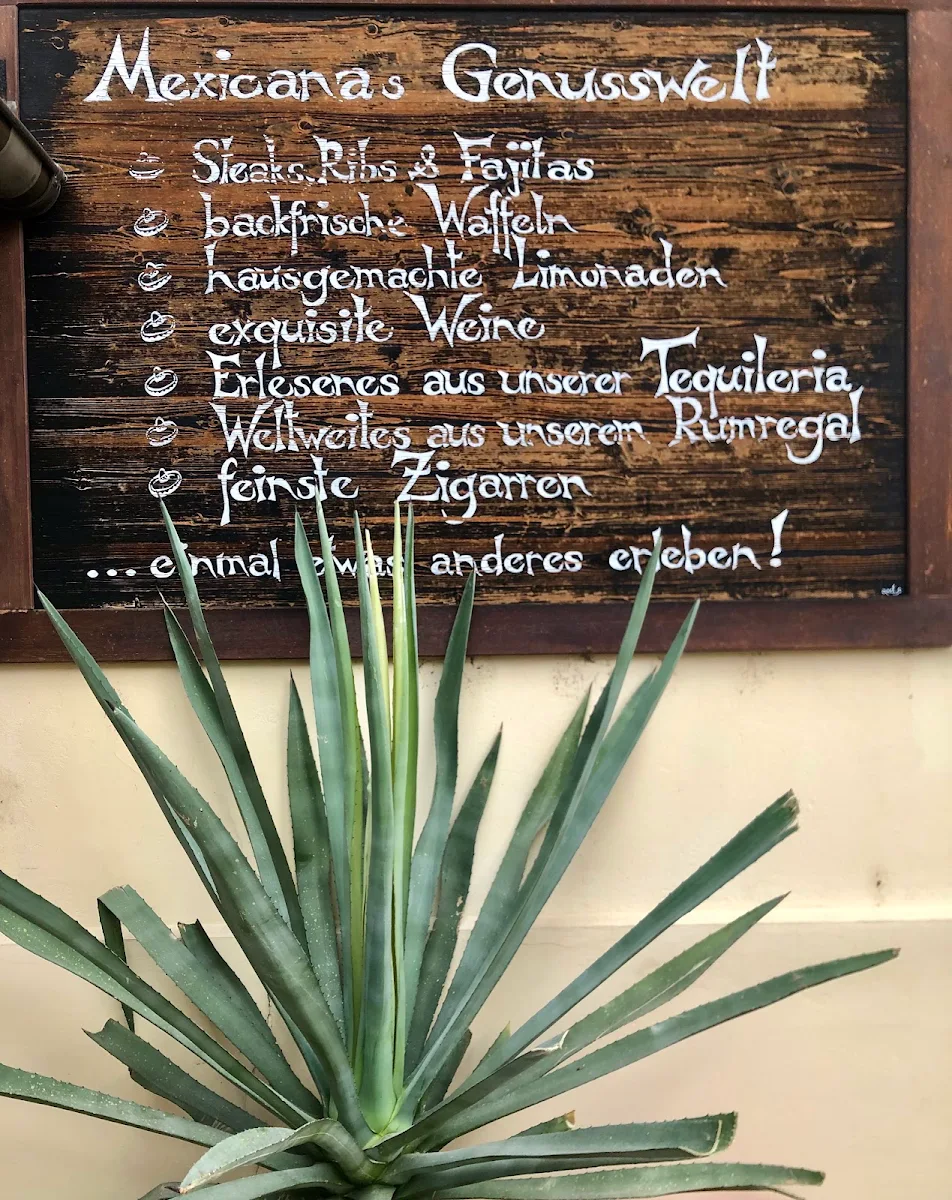 Mexicanas Genusswelt
Steaks, Ribs & Fajitas
backfrische Waffeln
hausgemachte Limonaden
exquisite Weine
Erlesenes aus unserer Tequileria
Weltweites aus unserem Rumregal
feinste Zigarren
... einmal etwas anderes erleben!